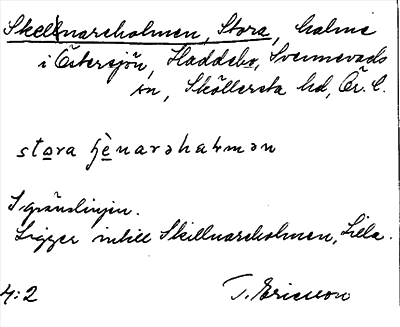 Skellnareholmen, Stora, holme
i Östersjön, Haddebo, Svennevads
sn, Sköllersta hd, Ör. l.
stora ʃènarəhaɬmən
I gränslinjen.
Ligger intill Skillnareholmen, Lilla.
4:2 T. Ericsson